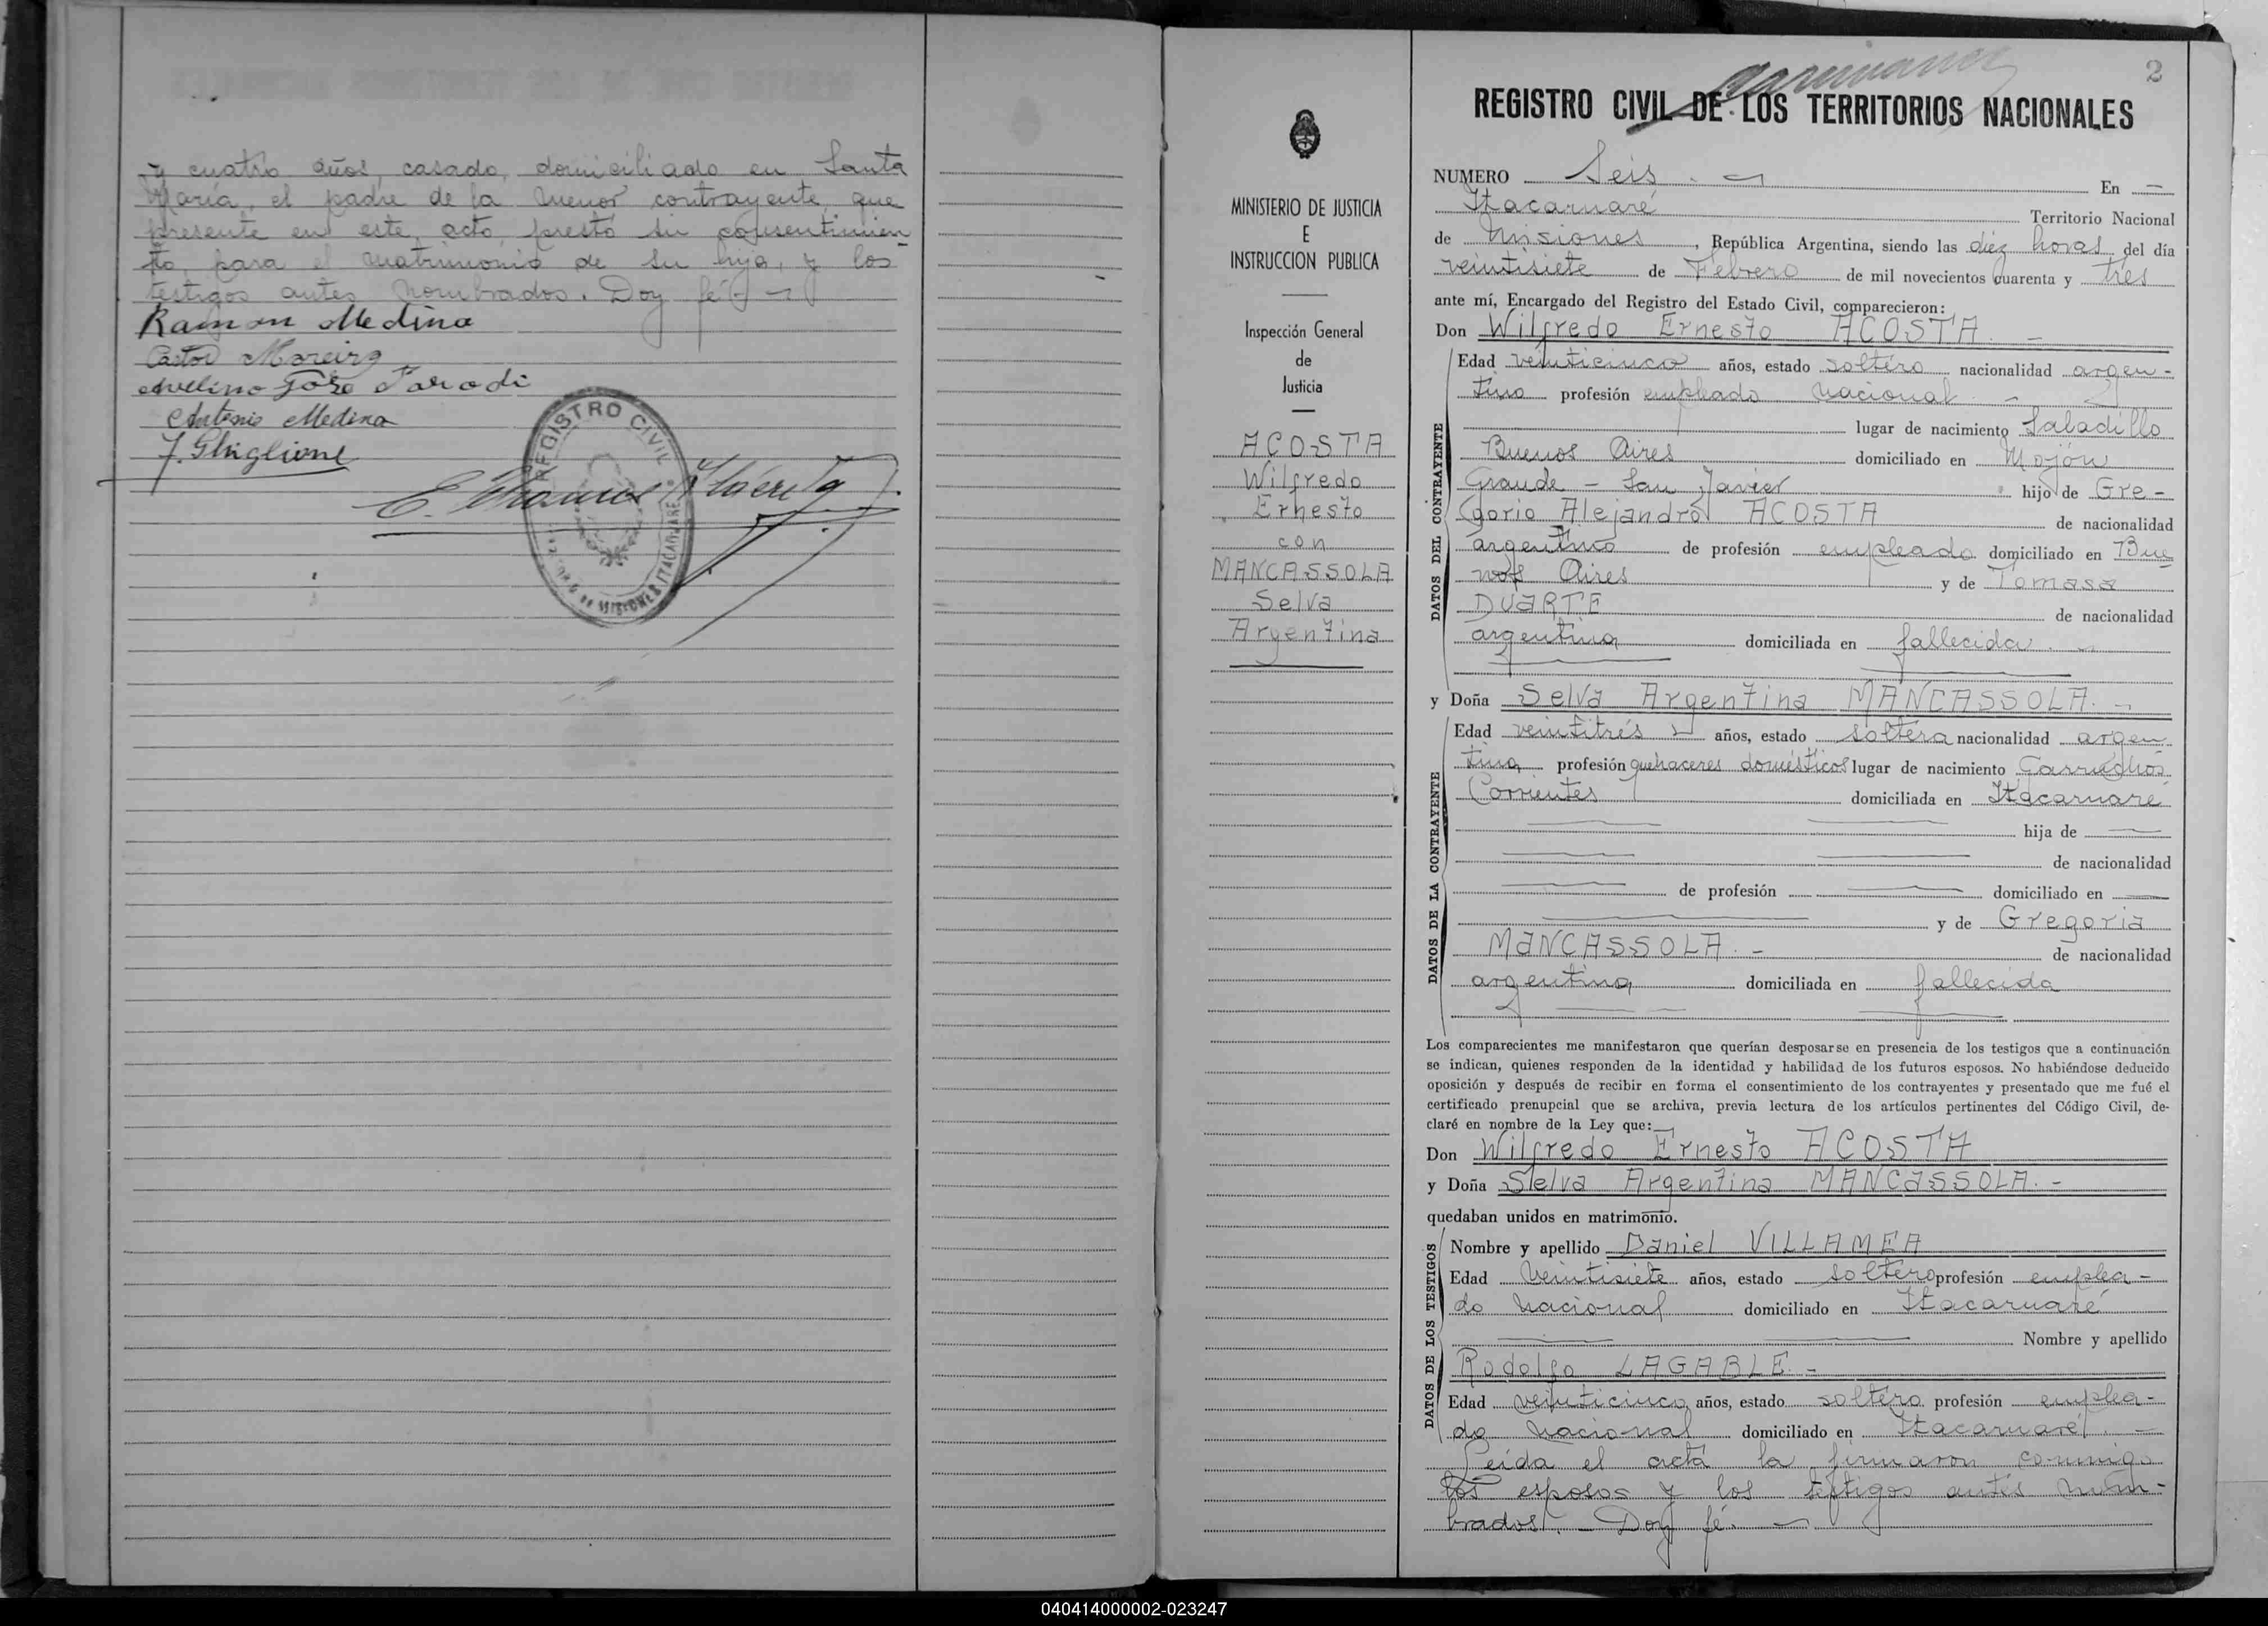 y cuatro años, casado, domiciliado en Santa
María, el padre de la menor contrayente, que
presente en este acto, prestó su consentimien-
to, para el matrimonio de su hija, y los
testigos antes nombrados. Doy fé.
Ramon Medina
Castor Moreira
Avelino José Parodi
Antonio Medina
J. Ghiglione
REGISTRO CIVIL
MISIONES ITACARUARE
2
REGISTRO CIVIL DE LOS TERRITORIOS NACIONALES
MINISTERIO DE JUSTICIA
E
INSTRUCCION PUBLICA
Inspección General
de
Justicia
ACOSTA
Wilfredo
Ernesto
con
MANCASSOLA
Selva
Argentina
NUMERO Seis. En
Itacaruaré Territorio Nacional
de Misiones, República Argentina, siendo las diez horas del día
veintisiete de Febrero de mil novecientos cuarenta y tres
ante mí, Encargado del Registro del Estado Civil, comparecieron:
Don Wilfredo Ernesto ACOSTA. -
DATOS DEL CONTRAYENTE
Edad veinticinco años, estado soltero nacionalidad argen-
tino profesión empleado nacional -
lugar de nacimiento Saladillo
Buenos Aires domiciliado en Mojón
Grande - San Javier hijo de Gre-
gorio Alejandro ACOSTA de nacionalidad
argentino de profesión empleado domiciliado en Bue
nos Aires y de Tomasa
DUARTE de nacionalidad
argentina domiciliada en fallecida.
y Doña Selva Argentina MANCASSOLA. -
DATOS DE LA CONTRAYENTE
Edad veintitrés años, estado soltera nacionalidad argen
tina profesión quehaceres domésticos lugar de nacimiento Garruchos
Corrientes domiciliada en Itacaruaré
hija de
de nacionalidad
de profesión domiciliado en
y de Gregoria
MANCASSOLA. - de nacionalidad
argentina domiciliada en fallecida
Los comparecientes me manifestaron que querían desposarse en presencia de los testigos que a continuación
se indican, quienes responden de la identidad y habilidad de los futuros esposos. No habiéndose deducido
oposición y después de recibir en forma el consentimiento de los contrayentes y presentado que me fué el
certificado prenupcial que se archiva, previa lectura de los artículos pertinentes del Código Civil, de-
claré en nombre de la Ley que:
Don Wilfredo Ernesto ACOSTA
y Doña Selva Argentina MANCASSOLA. -
quedaban unidos en matrimonio.
DATOS DE LOS TESTIGOS
Nombre y apellido Daniel VILLAMEA
Edad veintisiete años, estado soltero profesión emplea-
do nacional domiciliado en Itacaruaré
Nombre y apellido
Rodolfo LAGABLE. -
Edad veinticinco años, estado soltero profesión emplea-
do nacional domiciliado en Itacaruaré. -
Leída el acta la firmaron conmigo
los esposos y los testigos antes nom-
brados. - Doy fé. -
040414000002-023247